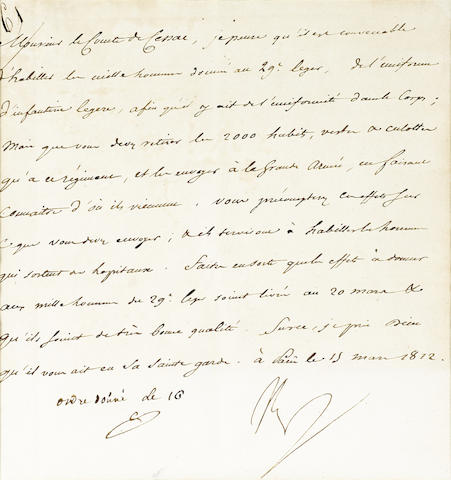 61
Monsieur le Comte de Cessac, je pense qu'il est convenable
d'habiller les mille hommes donnés au 29e leger, de l'uniforme
d'infanterie legere, afin qu'il y ait de l'uniformité dans le Corps;
mais que vous devez retirer les 2000 habits, vestes & culottes
qu'a ce régiment, et les envoyer à la Grande Armée, en faisant
connaitre d'où ils viennent. vous précompterez ces effets sur
ce que vous devez envoyer; & ils serviront à habiller les hommes
qui sortent des hopitaux. faites en sorte que les effets à donner
aux mille hommes du 29e leger soient livrés au 20 mars &
qu'ils soient de très bonne qualité. Sur ce, je prie Dieu
qu'il vous ait en sa sainte garde. à Paris le 15 mars 1812.
ordre donné le 16